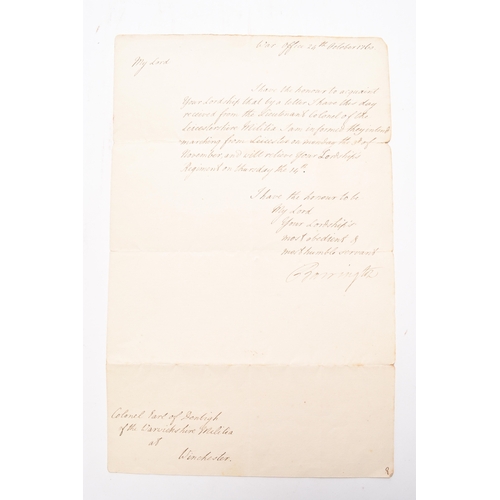 War Office 24th October 176
My Lord
I have the honour to acquaint
Your Lordship that by a letter I have this day
received from the Lieutenant Colonel of the
Leicestershire Militia I am informed they intend
marching from Leicester on monday the of
November, and will relieve Your Lordship's
Regiment on thursday the 14th.
I have the honour to be
My Lord
Your Lordship's
most obedient &
most humble servant
Barrington
Colonel Earl of Denbigh
of the Warwickshire Militia
at
Winchester.